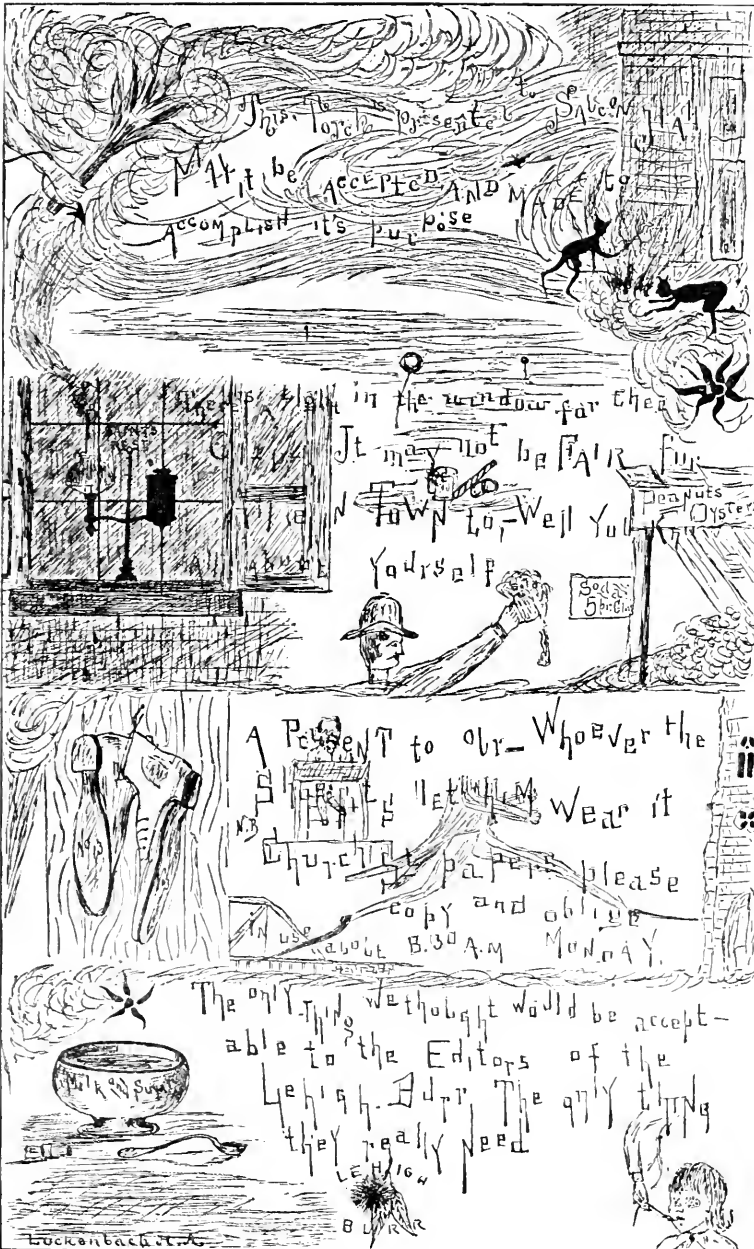 This Torch is presented to Saucon Hall
May it be Accepted, and made to
Accomplish it's purpose
There's a light in the window for thee
It may not be Fair for
in Town to,- Well You
Yourself
Peanuts
Oysters
Soda
5
A Present to our- Whoever the
let him Wear it
N.B. Church papers please
copy and oblige
in use about 8.30 A.M Monday.
The only thing we thought would be accept-
able to the Editors of the
Lehigh Burr. The only thing
they really need
Milk and Sugar
LEHIGH
BURR